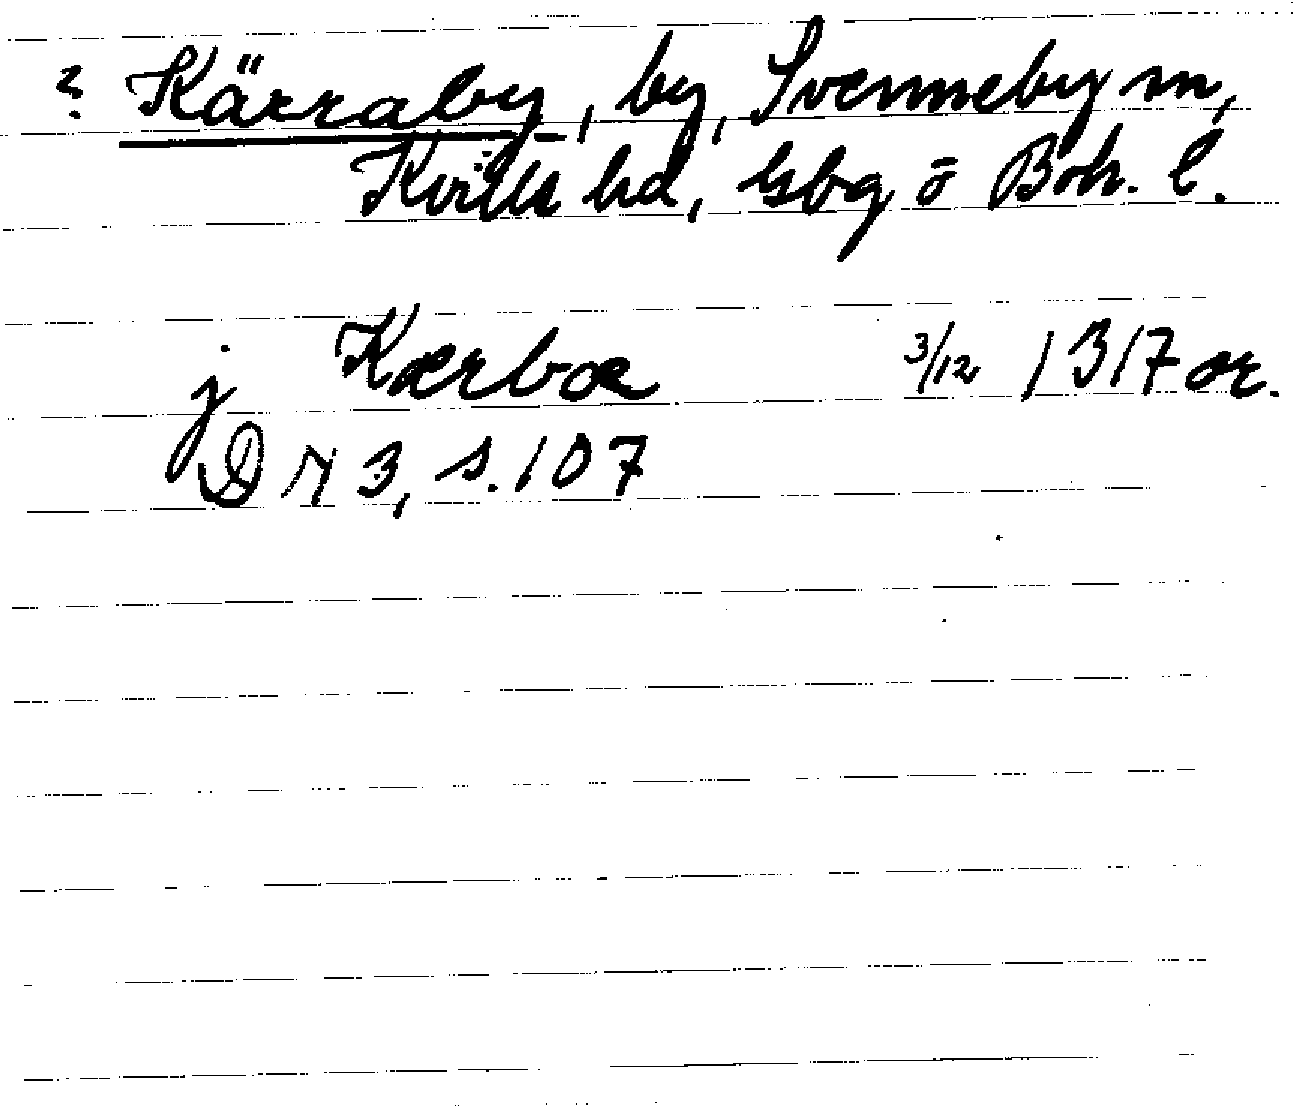 ? Käraby, by, Svenneby sn,
Kville hd, Gbg o Boh. l.
j Kærboæ 3/12 1317 or.
DN 3, s. 107